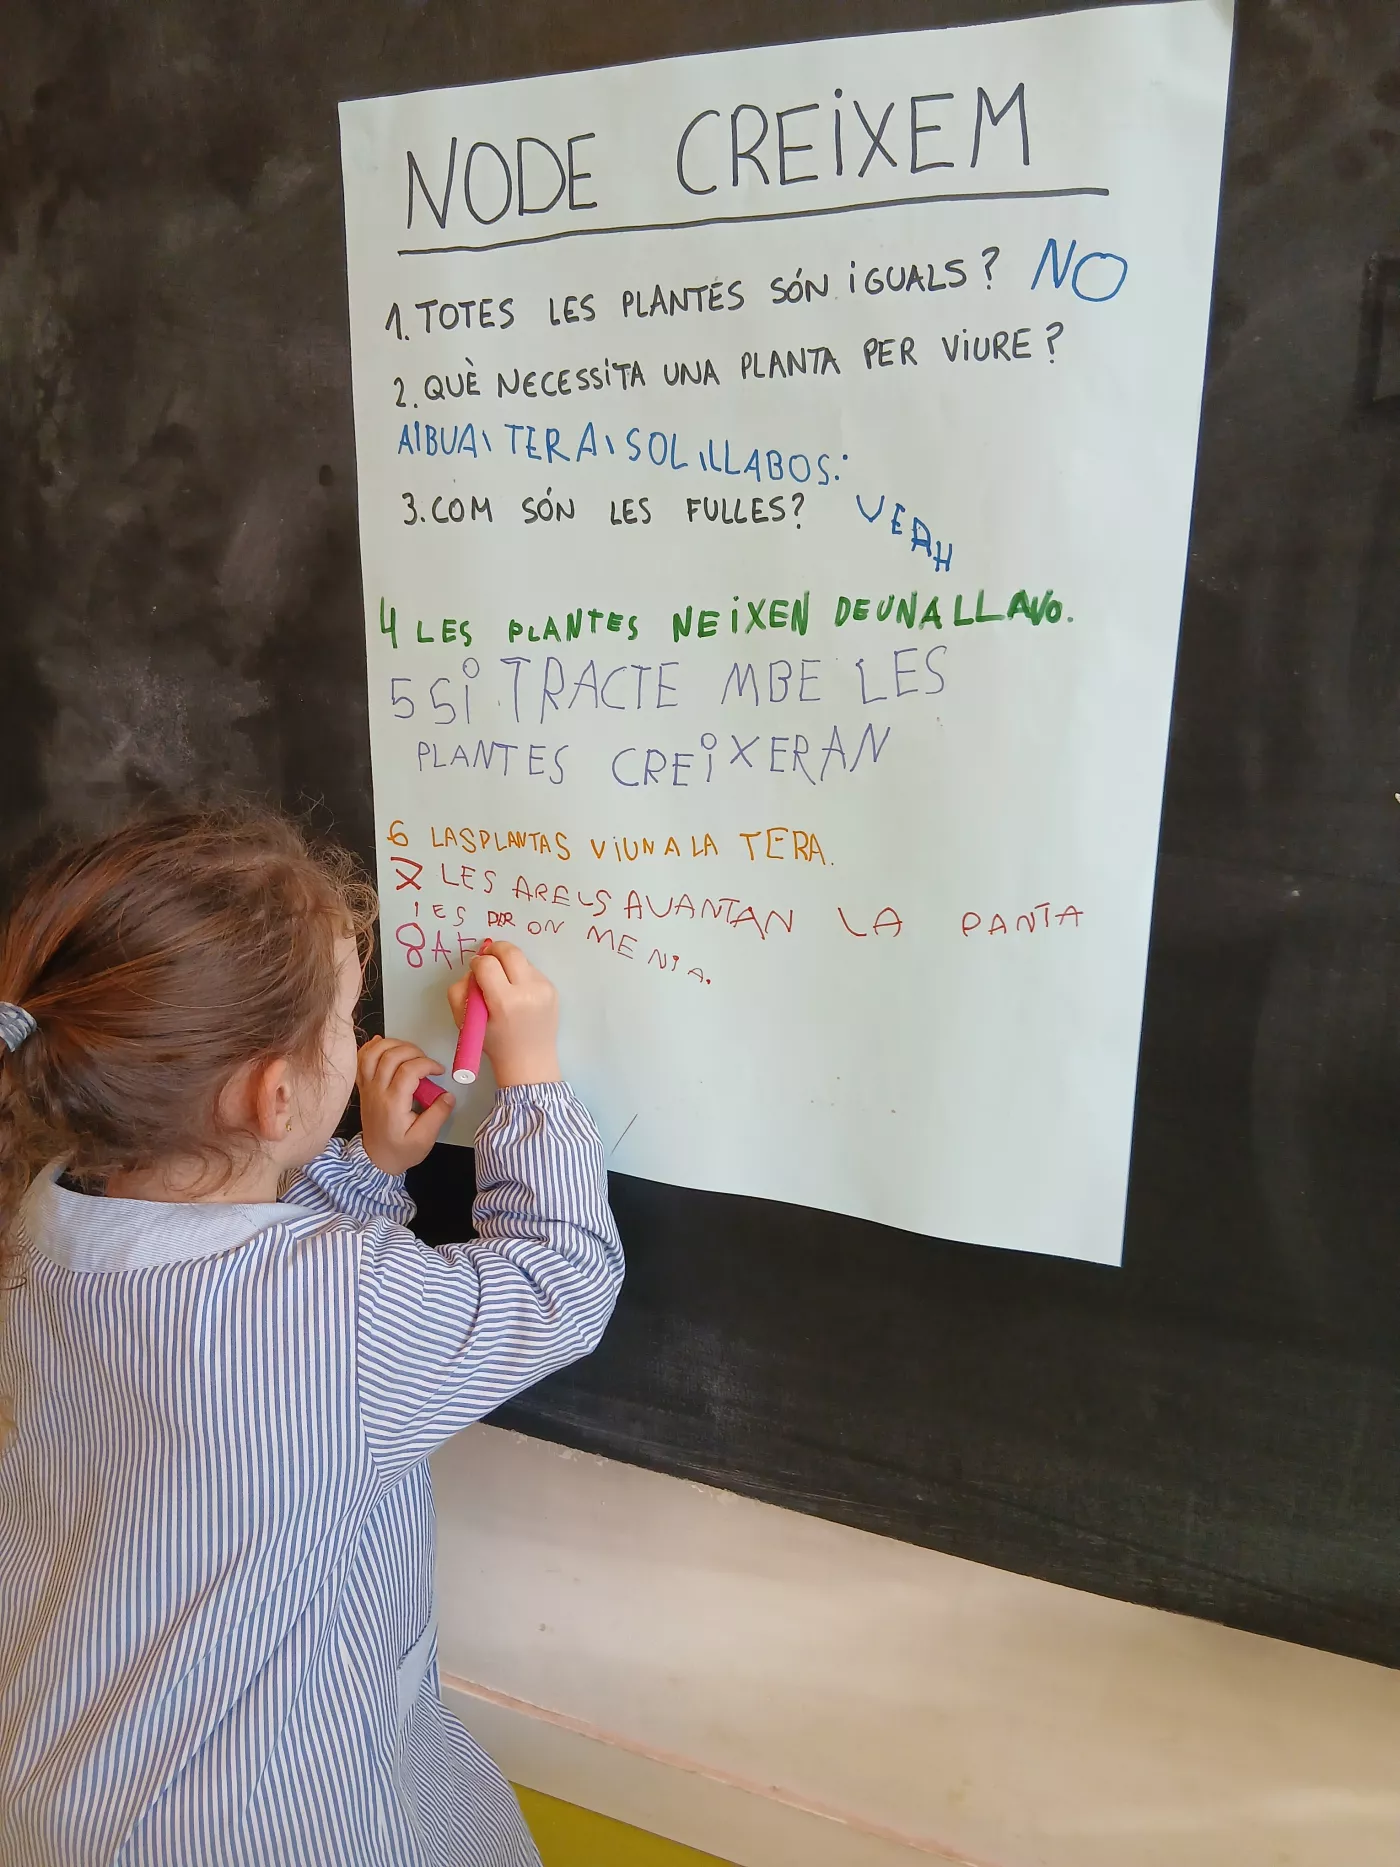 NODE CREIXEM
1. TOTES LES PLANTES SÓN IGUALS? NO
2. QUÈ NECESSITA UNA PLANTA PER VIURE?
AIBUAI TERAI SOL ILLABOS.
3. COM SÓN LES FULLES? VEAH
4 LES PLANTES NEIXEN DEUNALLAVO.
5 SI TRACTE MBE LES
PLANTES CREIXERAN
6 LASPLANTAS VIUNALA TERA.
7 LES ARELS AUANTAN LA PANTA
IES PER ON MENJA.
8 AF